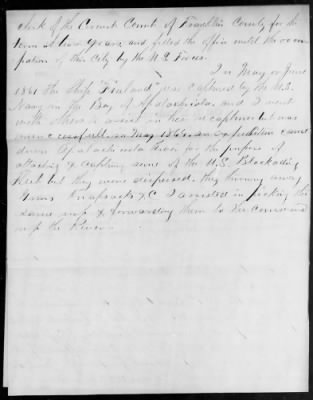 clerk of the Circuit Court of Franklin County for the
term of two years, and filled the office until the occu
pation of this City by the U.S. Forces.
In May or June
1861 the Ship "Finland" was captured by the U.S.
Navy in the Bay of Apalachicola, and I went
with others to assist in her recapture but was
unsuccessfull. in May 1864. an Expedition came
down Apalachicola River for the purpose of
attacking & capturing some of the U.S. Blockading
Fleet but they were dispersed. they throwing away
Arms Knapsacks &C I assisted in picking the
same up & forwarding them to the Command
up the River.